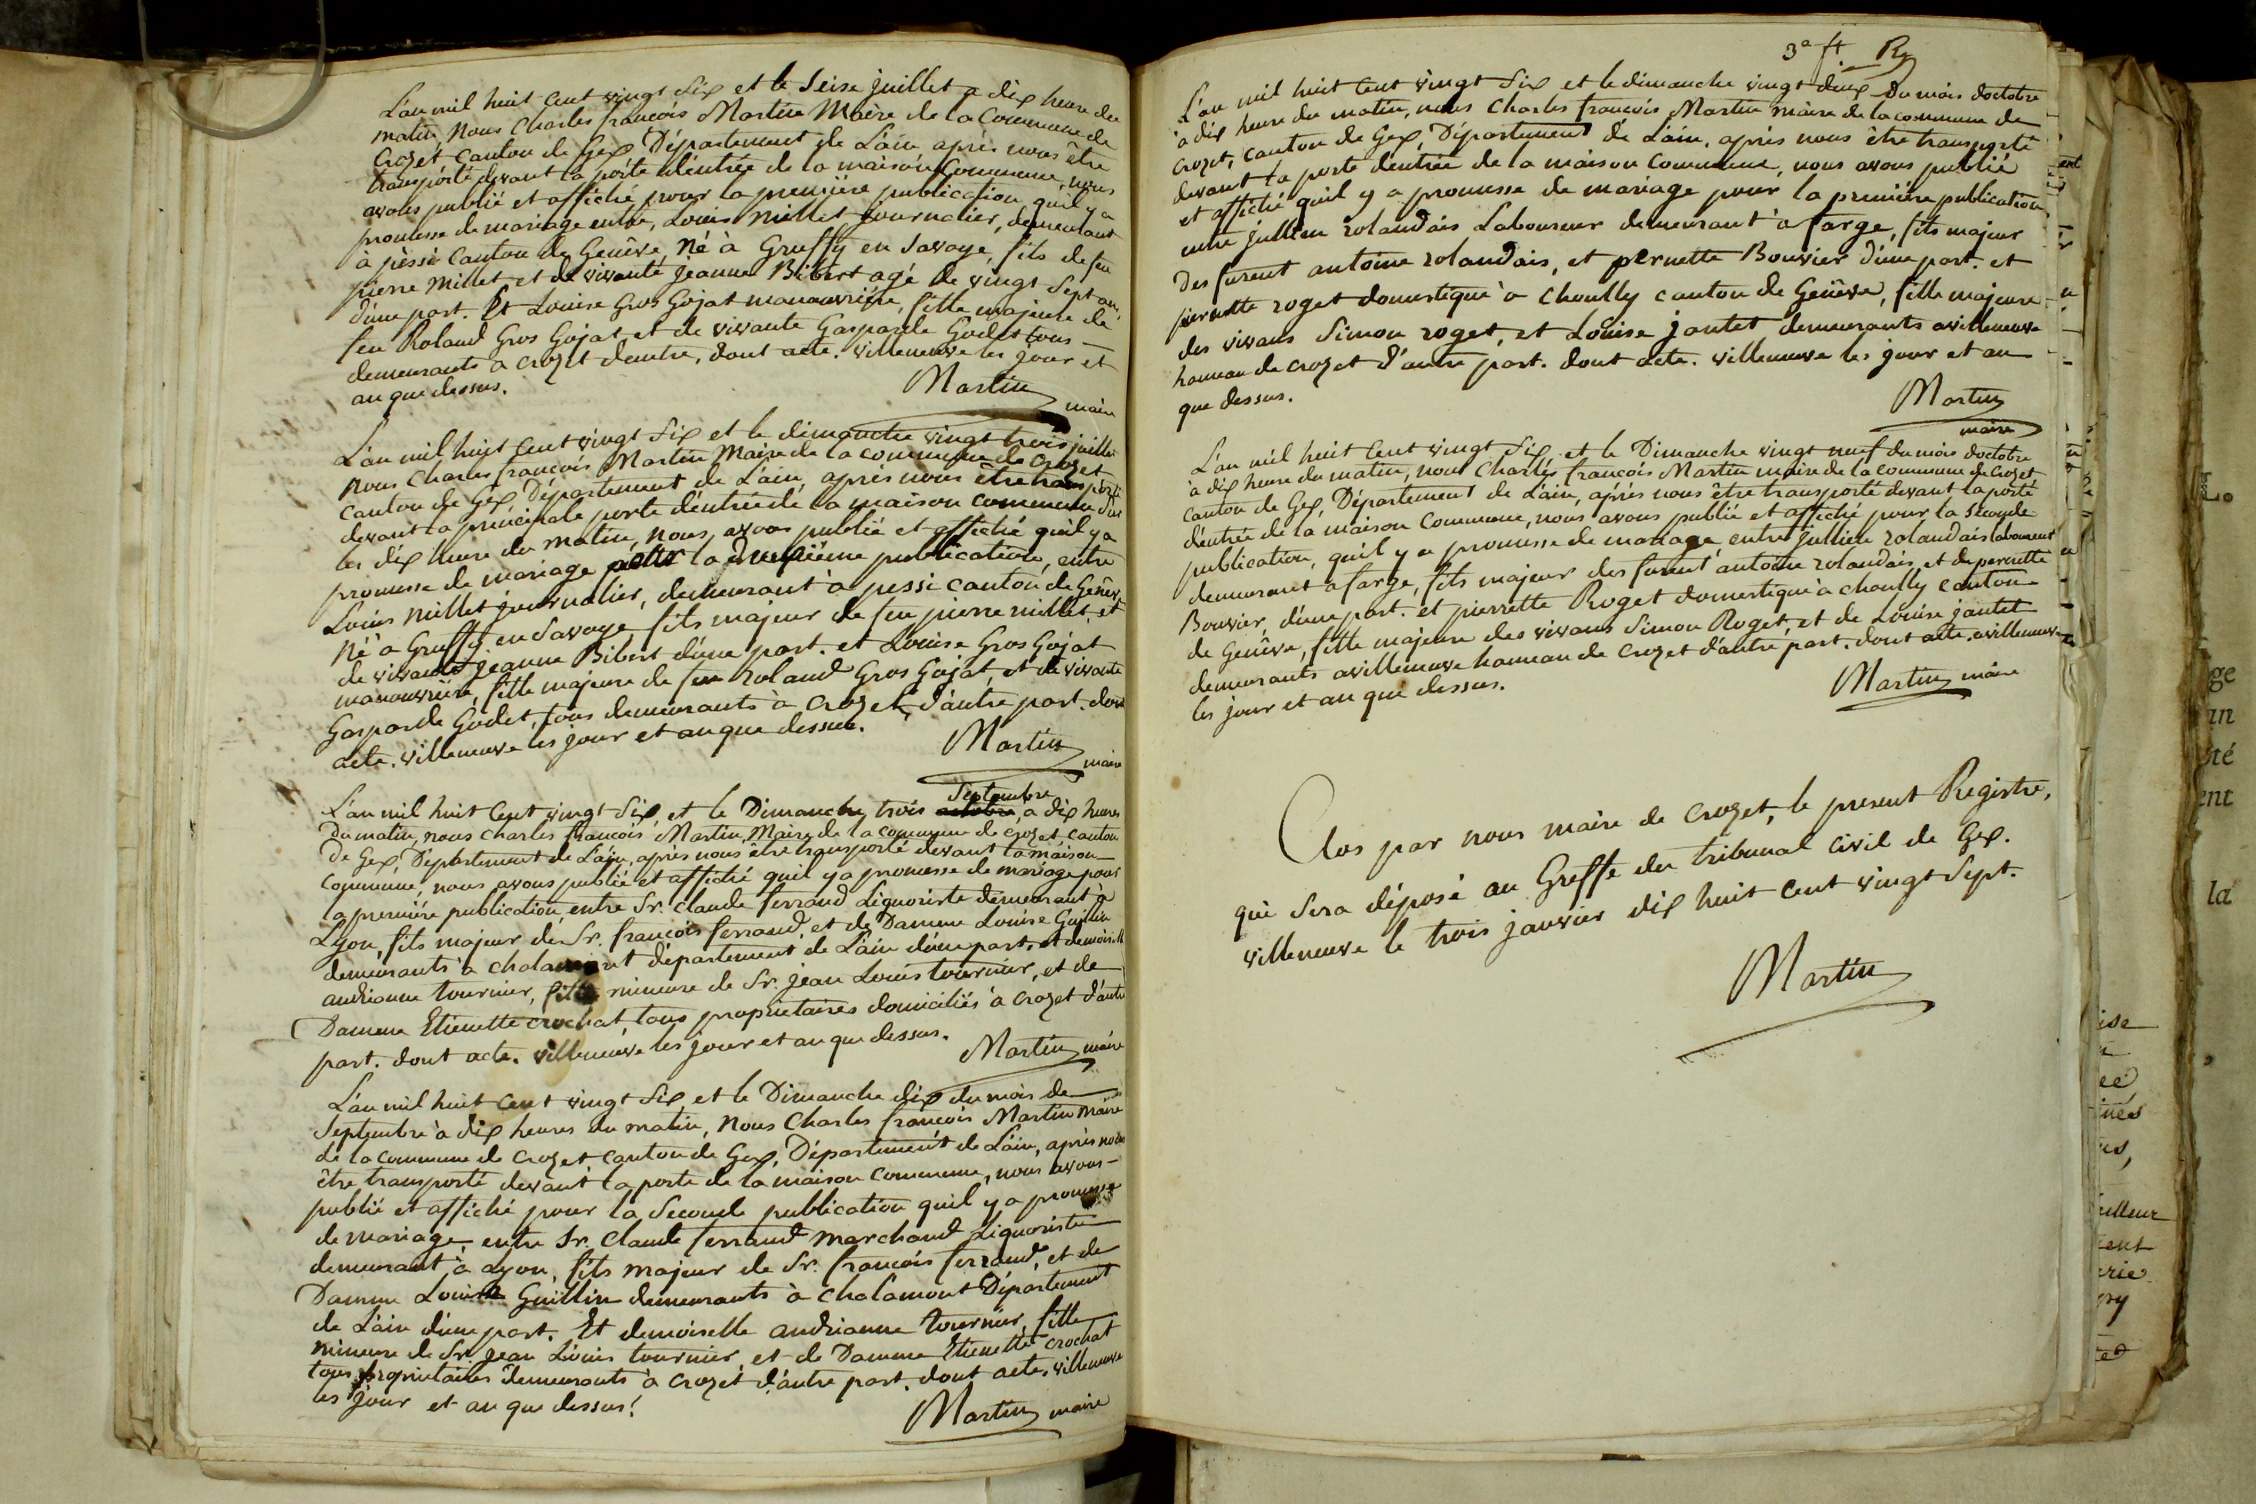 L'an mil huit cent vingt six et le seise juillet a dix heure du
matin, Nous Charles françois Martin Maire de la Commune de
Crozet canton de Gex Département de L'ain après nous être
transporté devant la porte d'entrée de la maison Commune, nous
avons publié et affiché pour la première publication quil y a
promesse de mariage entre, Louis Millet journalier, demeurant
à pessi canton de Genêve, Né à Gruffy en Savoye, fils de feu
pierre Millet et de vivante jeanne Bibert agé de vingt sept ans,
d'une part. Et Louise Gros Gojat manouvrière, fille majeure de
feu Roland Gros Gojat et de vivante Gasparde Godet tous
demeurants à Crozet d'autre, dont acte. villeneuve les jour et
an que dessus.
Martin maire
L'an mil huit cent vingt six et le dimanche vingt trois juillet
Nous Charles françois Martin Maire de la commune de Crozet
canton de Gex Département de L'ain, après nous être transporté
devant la principale porte d'entrée de la maison commune
les dix heure du matin, Nous, avons publié et affiché quil y a
promesse de mariage pour la deuxième publication, entre
Louis Millet journalier, demeurant à pessi canton de Genêve
Né à Gruffy en Savoye, fils majeur de feu pierre millet, et
de vivante jeanne Bibert d'une part. et Louise Gros Gojat
manouvrière, fille majeure de feu Roland Gros Gojat, et de vivante
Gasparde Godet, tous demeurants à Crozet, d'autre part. dont
acte. villeneuve les jour et an que dessus.
Martin maire
Septembre
L'an mil huit cent vingt six, et le Dimanche trois octobre, à dix heures
Du matin, nous Charles françois Martin, Maire de la commune de Crozet canton
De Gex, Département de L'ain, après nous être transporté devant la maison
Commune, nous avons publié et affiché quil y a promesse de mariage pour
la première publication, entre Sr. Claude ferrand Liquoriste demeurant à
Lyon, fils majeur de Sr. françois ferrand, et de Damme Louise Guillin
demeurants à chalamont département de L'ain d'une part. et demoiselle
andrianne tournier, fille mineure de Sr. jean Louis tournier, et de
Damme Etiennette crochat, tous proprietaires domiciliés à Crozet d'autre
part. dont acte. villeneuve les jour et an que dessus.
Martin maire
L'an mil huit cent vingt six et le Dimanche dix du mois de
Septembre à dix heures du matin, Nous Charles françois Martin Maire
de la commune de Crozet, canton de Gex, Département de L'ain, après nous
être transporté devant la porte de la maison commune, nous avons
publié et affiché pour la Seconde publication quil y a promesse
de mariage, entre Sr. Claude ferrand Marchand Liquoriste
demeurant à Lyon, fils majeur de Sr. françois ferrand, et de
Damme Louise Guillin demeurants à chalamont Département
de L'ain d'une part. Et demoiselle andrianne tournier, fille
mineure de Sr. jean Louis tournier, et de Damme Etiennette crochat
tous proprietaires demeurants à Crozet d'autre part. dont acte. villeneuve
les jour et an que dessus.
Martin maire
3e ft. R
L'an mil huit cent vingt six et le dimanche vingt deux du mois doctobre
à dix heure du matin, nous Charles françois Martin maire de la commune de
crozet, canton de Gex, Département de L'ain, après nous être transporté
devant la porte d'entrée de la maison Commune, nous avons publié
et affiché quil y a promesse de mariage pour la première publication
entre jullien rolandais Laboureur demeurant à farge, fils majeur
Des furent antoine rolandais, et pernette Bouvier d'une part. et
pierrette roget domestique à choully canton de Genêve, fille majeure
des vivans Simon roget, et Louise jantet demeurants a villeneuve
hameau de crozet d'autre part. dont acte. villeneuve les jour et an
que dessus.
Martin
maire
L'an mil huit cent vingt six, et le Dimanche vingt neuf du mois doctobre
à dix heure du matin, nous Charles françois Martin maire de la commune de crozet
canton de Gex, Département de L'ain, après nous être transporté devant la porte
d'entrée de la maison Commune, nous avons publié et affiché pour la seconde
publication, quil y a promesse de mariage entre jullien rolandais laboureur
demeurant a farge, fils majeur des furent antoine rolandais, et de pernette
Bouvier, d'une part. et pierrette Roget domestique à choully canton
de Genêve, fille majeure des vivans Simon Roget, et de Louise jantet
demeurants a villeneuve hameau de Crozet d'autre part. dont acte. a villeneuve
les jour et an que dessus.
Martin maire
Clos par nous maire de Crozet, le present Registre,
qui sera déposé au Greffe du tribunal civil de Gex.
villeneuve le trois janvier dix huit cent vingt sept.
Martin